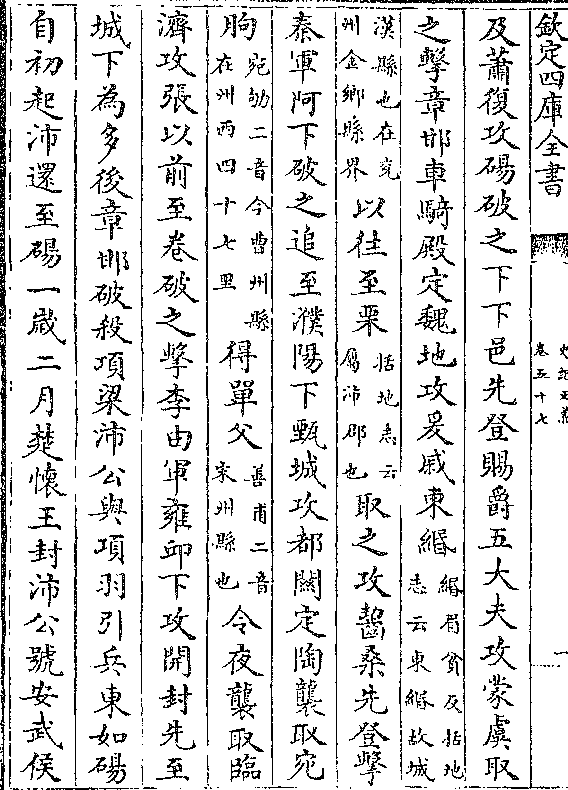 欽定四庫全書
史記正義
卷五十七
一
及蕭復攻碭破之下下邑先登賜爵五大夫攻蒙虞取
之擊章邯車騎殿定魏地攻爰戚東緡緡眉貧反括地志云東緡故城
漢縣也在兖州金鄉縣界以往至栗括地志云屬沛郡也取之攻齧桑先登擊
秦軍阿下破之追至濮陽下甄城攻都關定陶襲取宛
朐宛劬二音今曹州縣在州西四十七里得單父善甫二音宋州縣也令夜襲取臨
濟攻張以前至卷破之擊李由軍雍丘下攻開封先至
城下為多後章邯破殺項梁沛公與項羽引兵東如碭
自初起沛還至碭一歲二月楚懷王封沛公號安武侯